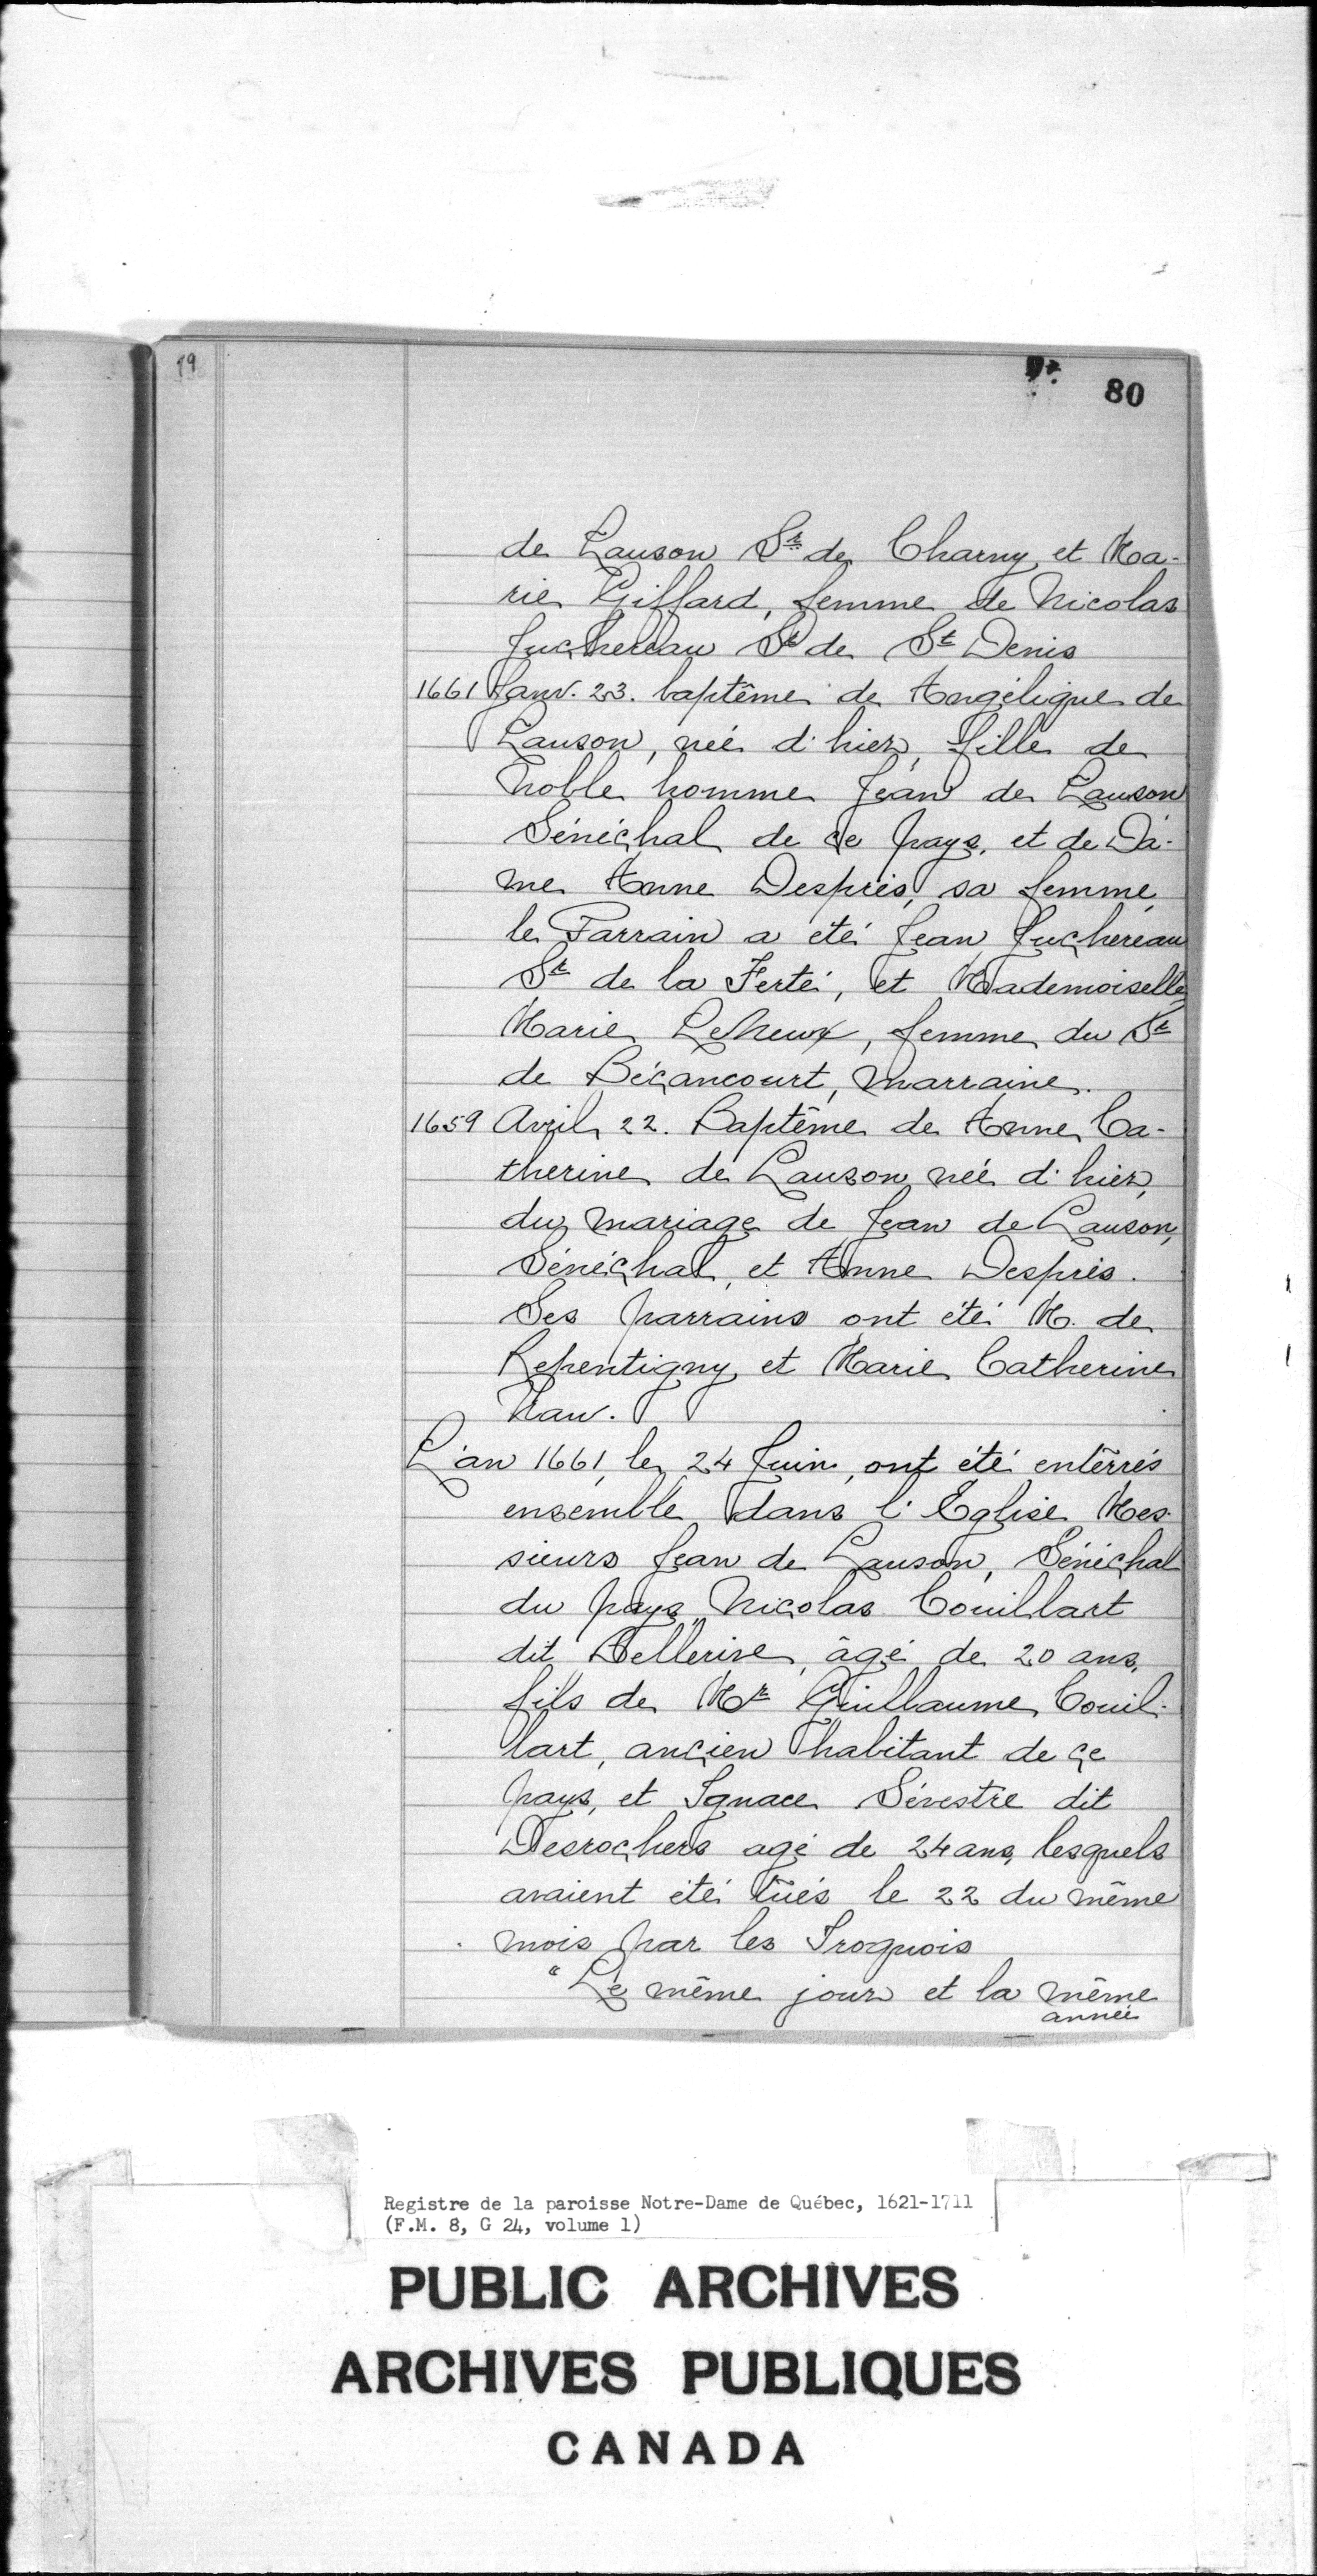 79
80
de Lauson Sr de Charny, et Ma-
rie Giffard, femme de Nicolas
Juchereau Sr de St Denis
1661 Janv. 23. baptême de Angélique de
Lauson, née d'hier, fille de
Noble homme Jean de Lauson
Sénéchal de ce pays, et de Da-
me Anne Després, sa femme,
le Parrain a été Jean Juchereau
Sr de la Ferté, et Mademoiselle
Marie LeNeuf, femme du Sr
de Bécancourt, Marraine.
1659 Avril 22. Baptême de Anne Ca-
therine de Lauson née d'hier,
du mariage de Jean de Lauson,
Sénéchal, et Anne Després.
Ses parrains ont été M. de
Repentigny et Marie Catherine
L'an 1661, le 24 Juin, ont été enterrés
ensemble dans l'Eglise Mes-
sieurs Jean de Lauson, Sénéchal
du pays, Nicolas Couillart
dit Bellerive, âgé de 20 ans,
fils de Mr Guillaume Couil-
lart, ancien habitant de ce
pays, et Ignace Sévestre dit
Desrochers agé de 24 ans, lesquels
avaient été tués le 22 du même
mois par les Iroquois
"Le même jour et la même
année
Registre de la paroisse Notre-Dame de Québec, 1621-1711
(F.M. 8, G 24, volume 1)
PUBLIC ARCHIVES
ARCHIVES PUBLIQUES
CANADA